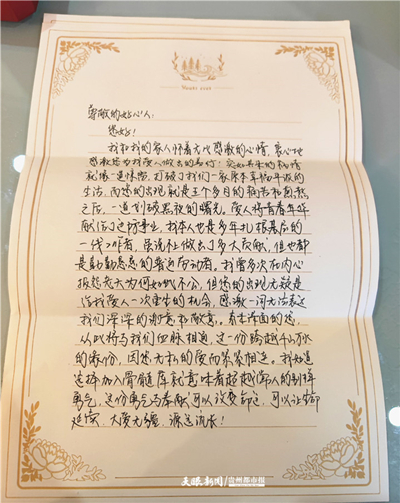 尊敬的好心人：
您好！
我和我的家人怀着无比感激的心情，衷心地
感激您为我爱人做出的
就像一道惊雷，打破了我们一家原本平静的
生活，而您的出现就是三个多月的痛苦和煎熬
之后，一道划破黑夜的曙光。爱人将青春年华
献给了边防事业，我本人也是多年扎根基层的
一线工作者，虽说社做出了多大贡献，但也都
是勤勤恳恳的普通劳动者。我曾多次在内心
抱怨老天为何如此不公，但您的出现无疑是
给我爱人一次重生的机会，感激一词无法表达
我们深深的谢意和敬意。素未谋面的您，
从此将与我们血脉相通，这一份跨越千山万水
的缘份，因您无私的爱而紧紧相连。我知道
选择加入骨髓库就意味着超越常人的别样
勇气，这份勇气与奉献可以改变命运，可以让生命
延续，大爱无疆，源远流长！
天眼新闻/贵州都市报